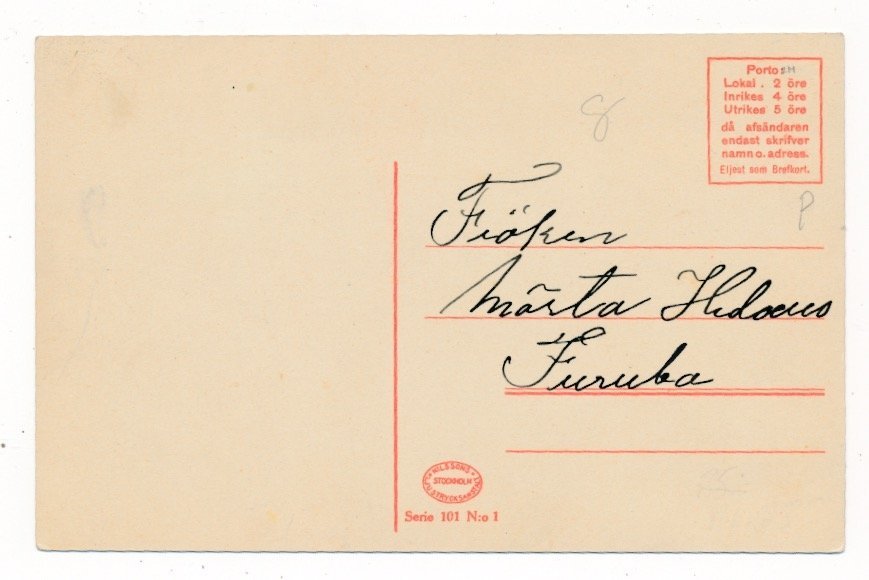 Porto:
Lokal . 2 öre
Inrikes 4 öre
Utrikes 5 öre
då afsändaren
endast skrifver
namn o. adress.
Eljest som Brefkort.
8
P
Fröken
Märta
Furuba
NILSSONS
STOCKHOLM
LJUSTRYCKSANSTALT
Serie 101 N:o 1